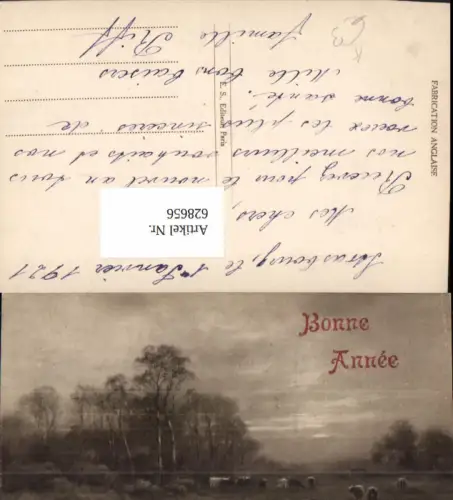 Strasbourg, le 1er Janvier 1921
Mes chers,
Recevez pour le nouvel an tous
nos meilleurs souhaits et nos
voeux les plus sincères de
bonne santé.
Mille bons baisers
famille Riff
FABRICATION ANGLAISE
E. S. Editeur Paris
Artikel Nr.
628656
Bonne
Année